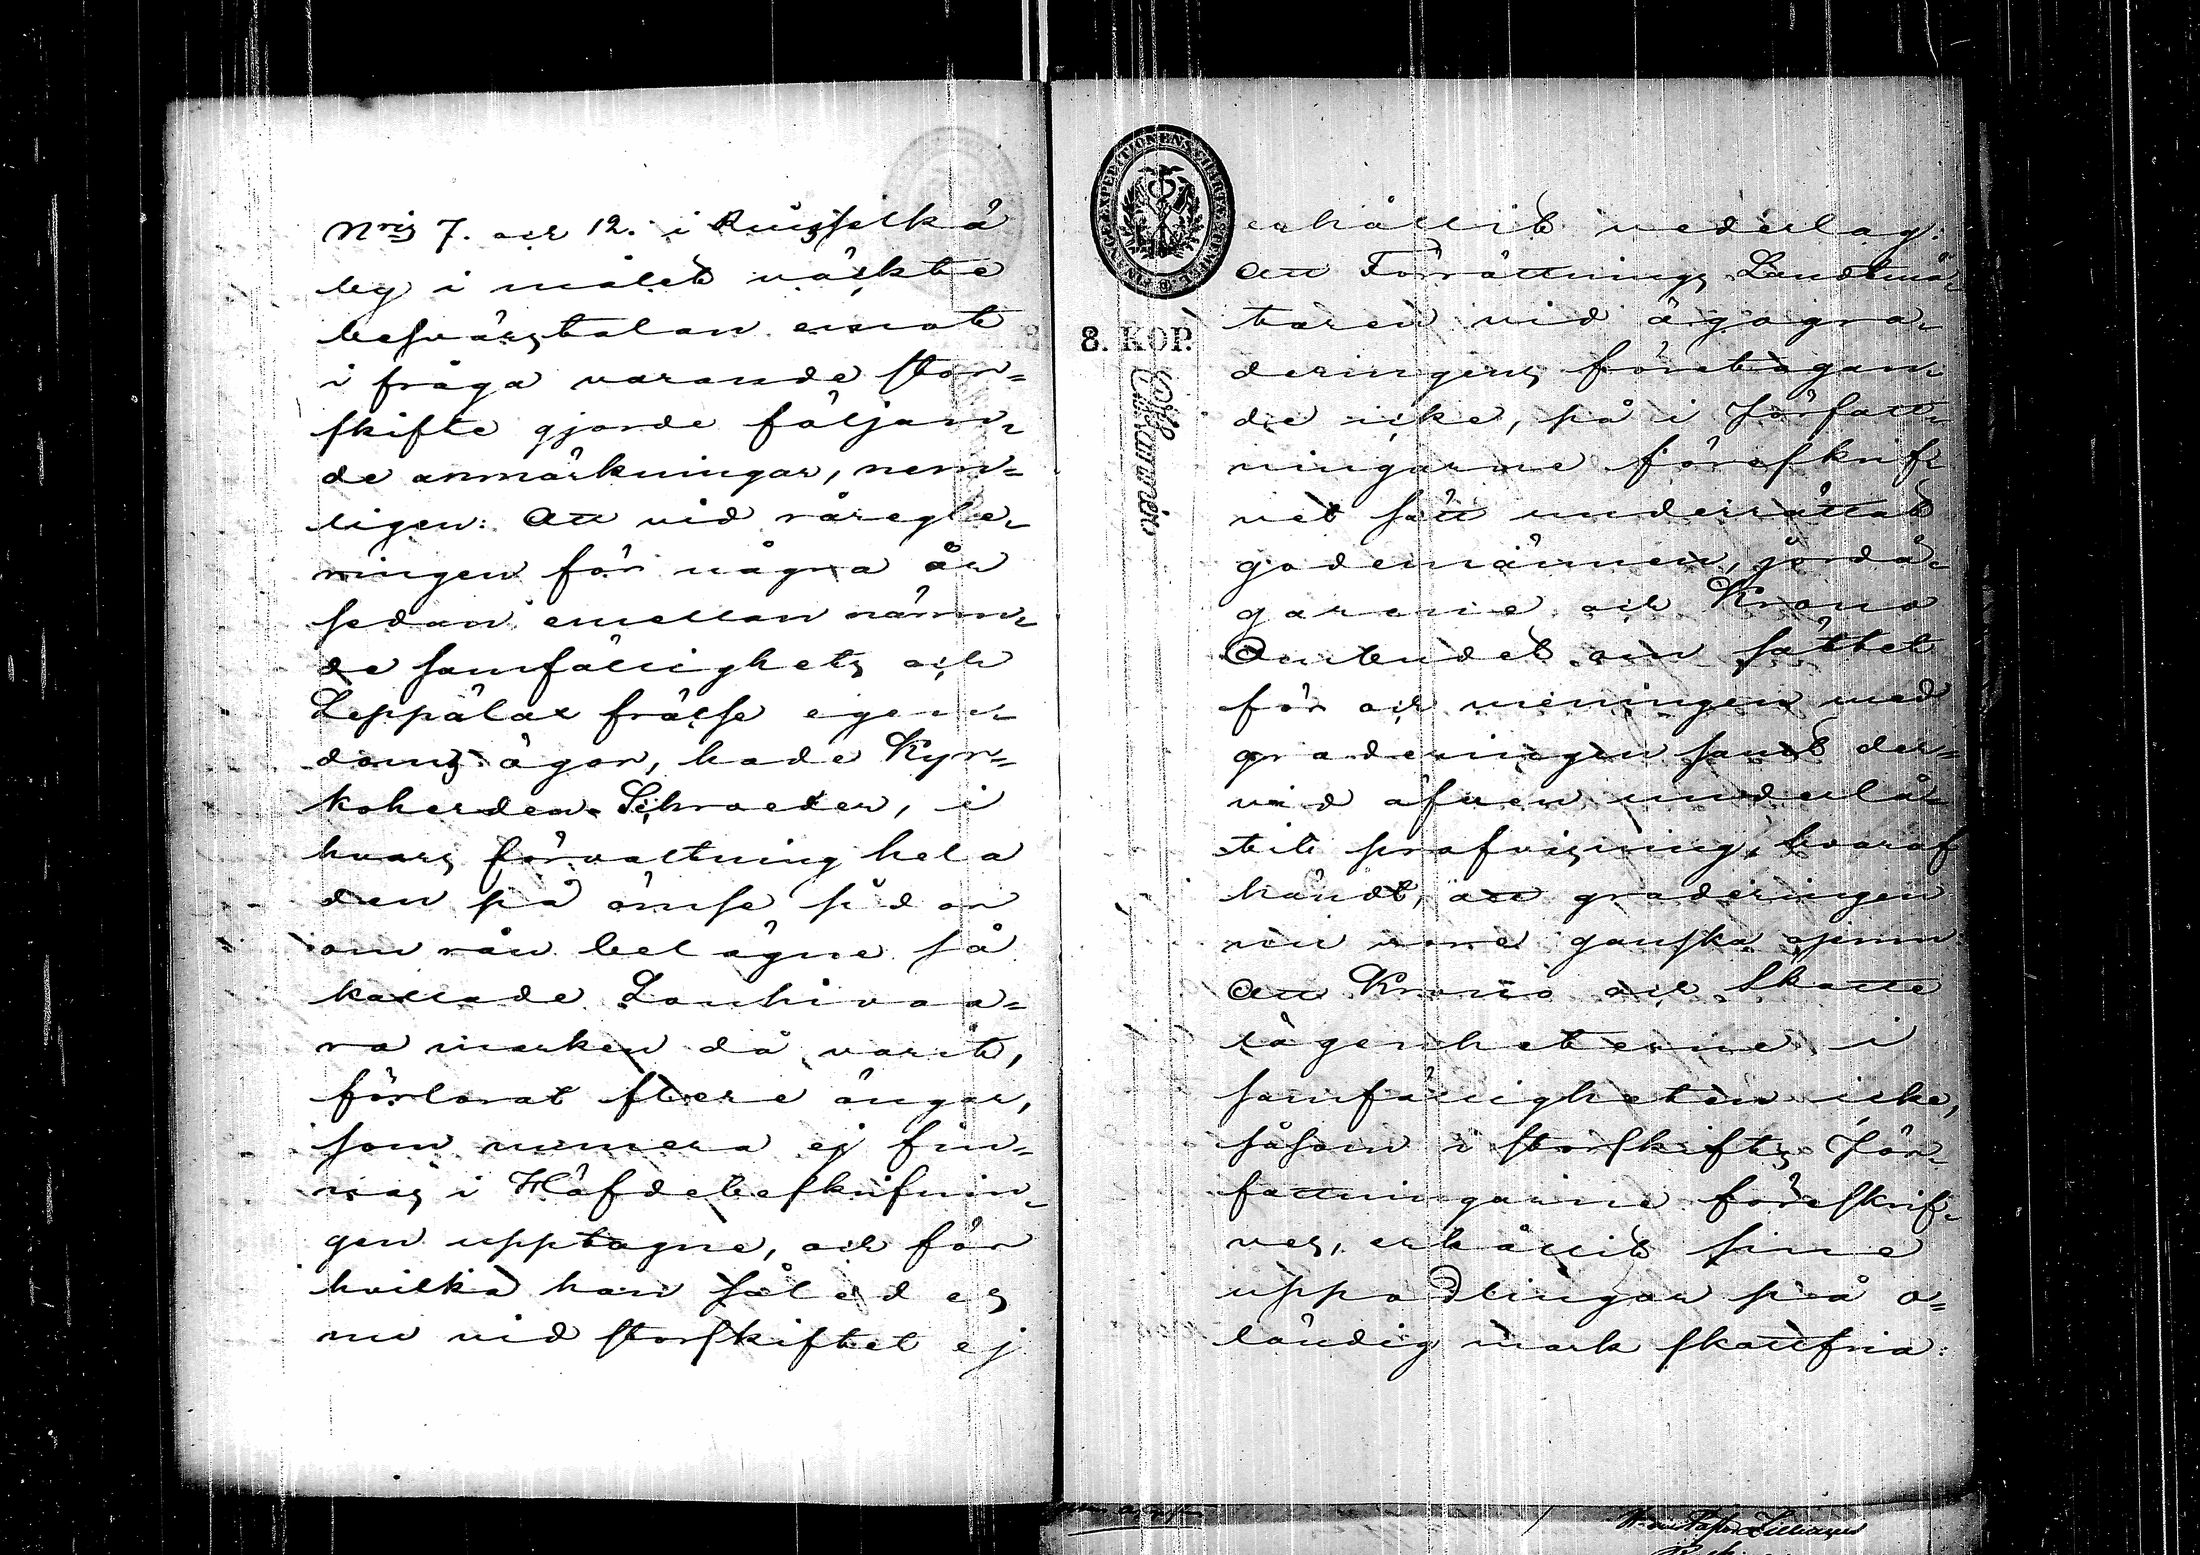 Nris 7. och 12. i Ruisselkä
by i målet väckte
besvärstalan emot
i fråga varande stor=
skifte gjorde följan=
de anmärkningar, nem=
ligen: Att vid råregle=
ringen för några år
sedan emellan nämn=
de samfällighets och
Leppälax frälse egen=
doms ägor, hade Kyr=
koherden Schroeder, i
hvars förvaltning hela
den på ömse sidor
om rån belägne så
kallade Louhivaa=
ra marken då varit,
förlorat flere ängar,
som numera ej fin=
nas i Häfdebeskrifnin=
gen upptagne, och för
hvilka han således
nu vid storskiftet ej
FINANCE EXPEDITIONENS
8. KOP.
erhållit vederlag.
Att Förrättnings Landtmä=
taren vid ägogra=
deringens företagan=
de icke, på i Författ=
ningarne föreskrif=
vet sätt underrättat
godemännen, jordä=
garene och Krono
Ombudet om sättet
för och meningen med
graderingen samt der=
vid äfven underlå=
tit profvisning, hvaraf
händt, att graderingen
nu vore ganska ojemn
Att Krono och Skatte
lägenheterne i
samfälligheten icke,
såsom i storskifts För=
fattningarne föreskrif=
ves, erhållit sine
uppodlingar på o=
ländig mark skattfria: